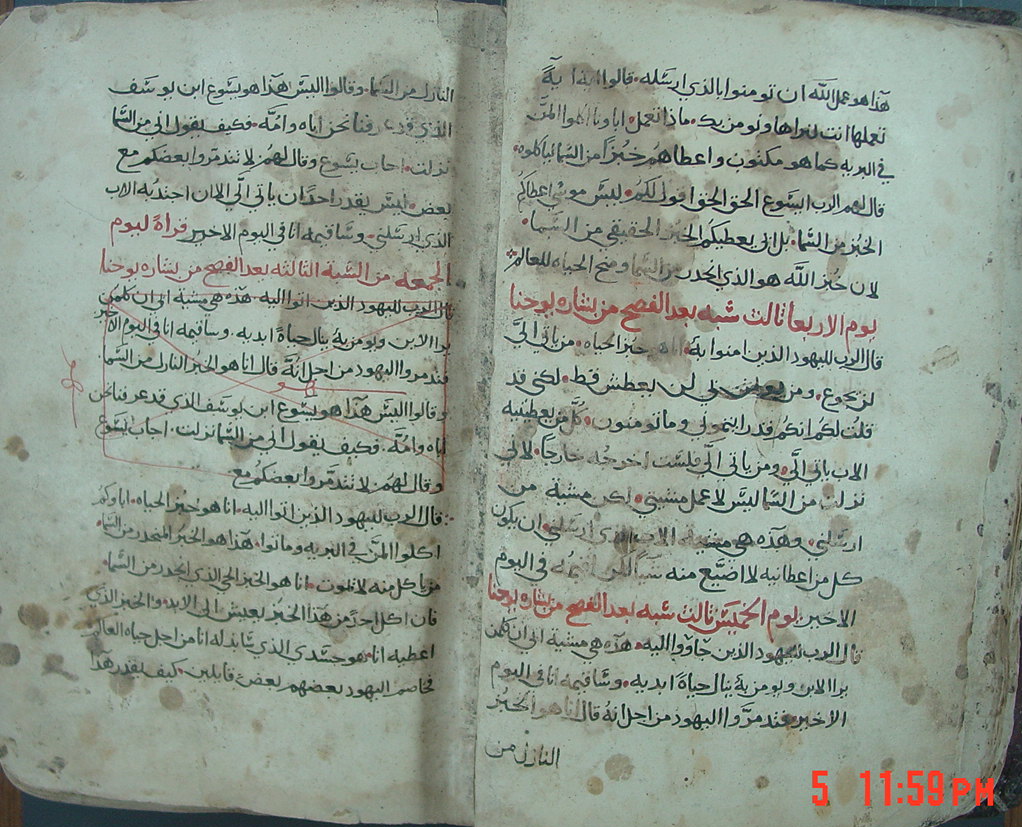 هذا هو عمل الله ان تومنوا بالذي ارسله. قالوا اية اية
تعملها انت لنراها ونومن بك. ماذا تعمل اباونا اكلوا المن
في البريه كما هو مكتوب واعطاهم خبزا من السما لياكلوه.
قال لهم الرب ايسوع الحق الحق اقول لكم. ليس موسى اعطاكم
الخبز من السما. بل ابي يعطيكم الخبز الحقيقي من السما.
لان خبز الله هو الذي انحدر من السما ومنح الحياه للعالم
يوم الاربعا ثالث سبه بعد الفصح من بشاره يوحنا
قال الرب لليهود الذين امنوا به. انا هو خبز الحياه. من ياتي الي
لن يجوع. ومن يومن بي لن يعطش قط. لكني قد
قلت لكم انكم قد رايتموني وما تومنون. كل من يعطينيه
الاب ياتي الي. ومن ياتي الي فلست اخرجه خارجا. لاني
نزلت من السما ليس لاعمل مشيتي. لكن مشية من
ارسلني. وهذه هي مشية الاب الذي ارسلني. ان يكون
كل من اعطانيه لا اضيع منه شيا لكن اقيمه في اليوم
الاخير. يوم الخميس ثالث سبه بعد الفصح من بشاره يوحنا
قال الرب لليهود الذين جاووا اليه. هذه هي مشية ابي ان كلمن
يرا الابن ويومن به ينال حياة ابديه. وساقيمه انا في اليوم
الاخير. فتدمروا اليهود من اجل انه قال انا هو الخبز
النازل من
النازل من السما. وقالوا اليس هذا هو يسوع ابن يوسف
الذي قد عرفنا نحن اباه وامه. فكيف يقول اني من السما
نزلت. اجاب يسوع وقال لهم. لا تتدمروا بعضكم مع
بعض. ليس يقدر احدا ان ياتي الي الا ان اجتدبه الاب
الذي ارسلني. وساقيمه انا في اليوم الاخير قراة ليوم
الجمعه من السبة الثالثه بعد الفصح من بشاره يوحنا
قال الرب لليهود الذين اتوا اليه هذه هي مشية ابي ان كلمن
يرا الابن ويومن به ينال حياة ابديه. وساقيمه انا في اليوم الاخير
فتدمروا اليهود من اجل انه قال انا هو الخبز النازل من السما.
وقالوا اليس هذا هو يسوع ابن يوسف الذي قد عرفنا نحن
اباه وامه. فكيف يقول اني من السما نزلت. اجاب يسوع
وقال لهم لا تتدمروا بعضكم مع
قال الرب لليهود الذين اتوا اليه. انا هو خبز الحياه. اباوكم
اكلوا المن في البريه وماتوا. هذا هو الخبز المنحدر من السما.
من ياكل منه لا يموت. انا هو الخبز الحي الذي انحدر من السما.
فان اكل احد من هذا الخبز يعيش الى الابد. والخبز الذي
اعطيه انا هو جسدي الذي سابدله انا من اجل حياه العالم
فخاصم اليهود بعضهم بعض قايلين. كيف يقدر هذا
5 11:59PM